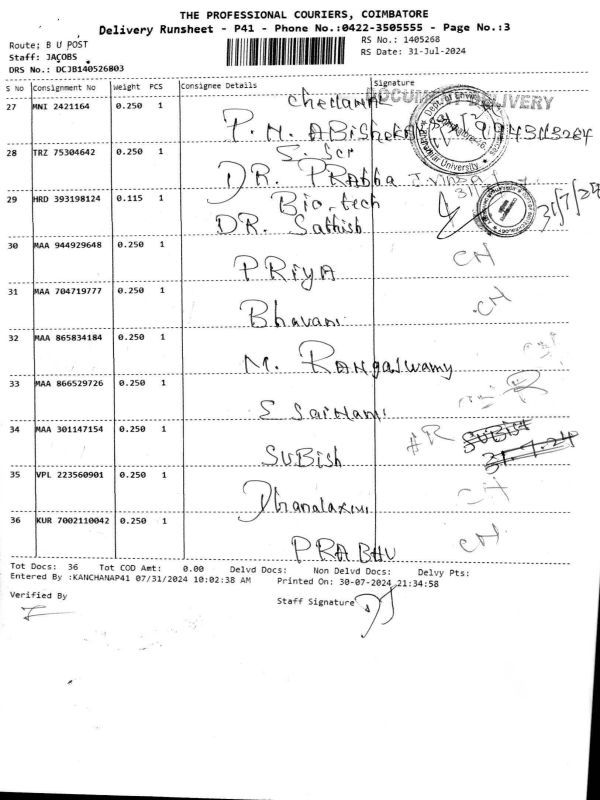 THE PROFESSIONAL COURIERS, COIMBATORE
Delivery Runsheet - P41 - Phone No.:0422-3505555 - Page No.:3
Route; B U POST
Staff: JACOBS
DRS No.: DCJB140526803
RS No.: 1405268
RS Date: 31-Jul-2024
S No Consignment No Weight PCS Consignee Details Signature
DOCUMENT DELIVERY
27 MNI 2421164 0.250 1
P. M. ABishek
28 TRZ 75304642 0.250 1
DR. PRabha
29 HRD 393198124 0.115 1 Bio.tech
DR. Sathish 31/7/24
30 MAA 944929648 0.250 1 CH
PRiyA
31 MAA 704719777 0.250 1 CH
Bhavani
32 MAA 865834184 0.250 1
M. RANgaswamy
33 MAA 866529726 0.250 1 R
S SaiNami
34 MAA 301147154 0.250 1 R SUBish
SUBish 31.7.24
35 VPL 223560901 0.250 1 CH
Dhanalaxmi
36 KUR 7002110042 0.250 1 CH
PRABHU
Tot Docs: 36 Tot COD Amt: 0.00 Delvd Docs: Non Delvd Docs: Delvy Pts:
Entered By :KANCHANAP41 07/31/2024 10:02:38 AM Printed On: 30-07-2024 21:34:58
Verified By
Staff Signature